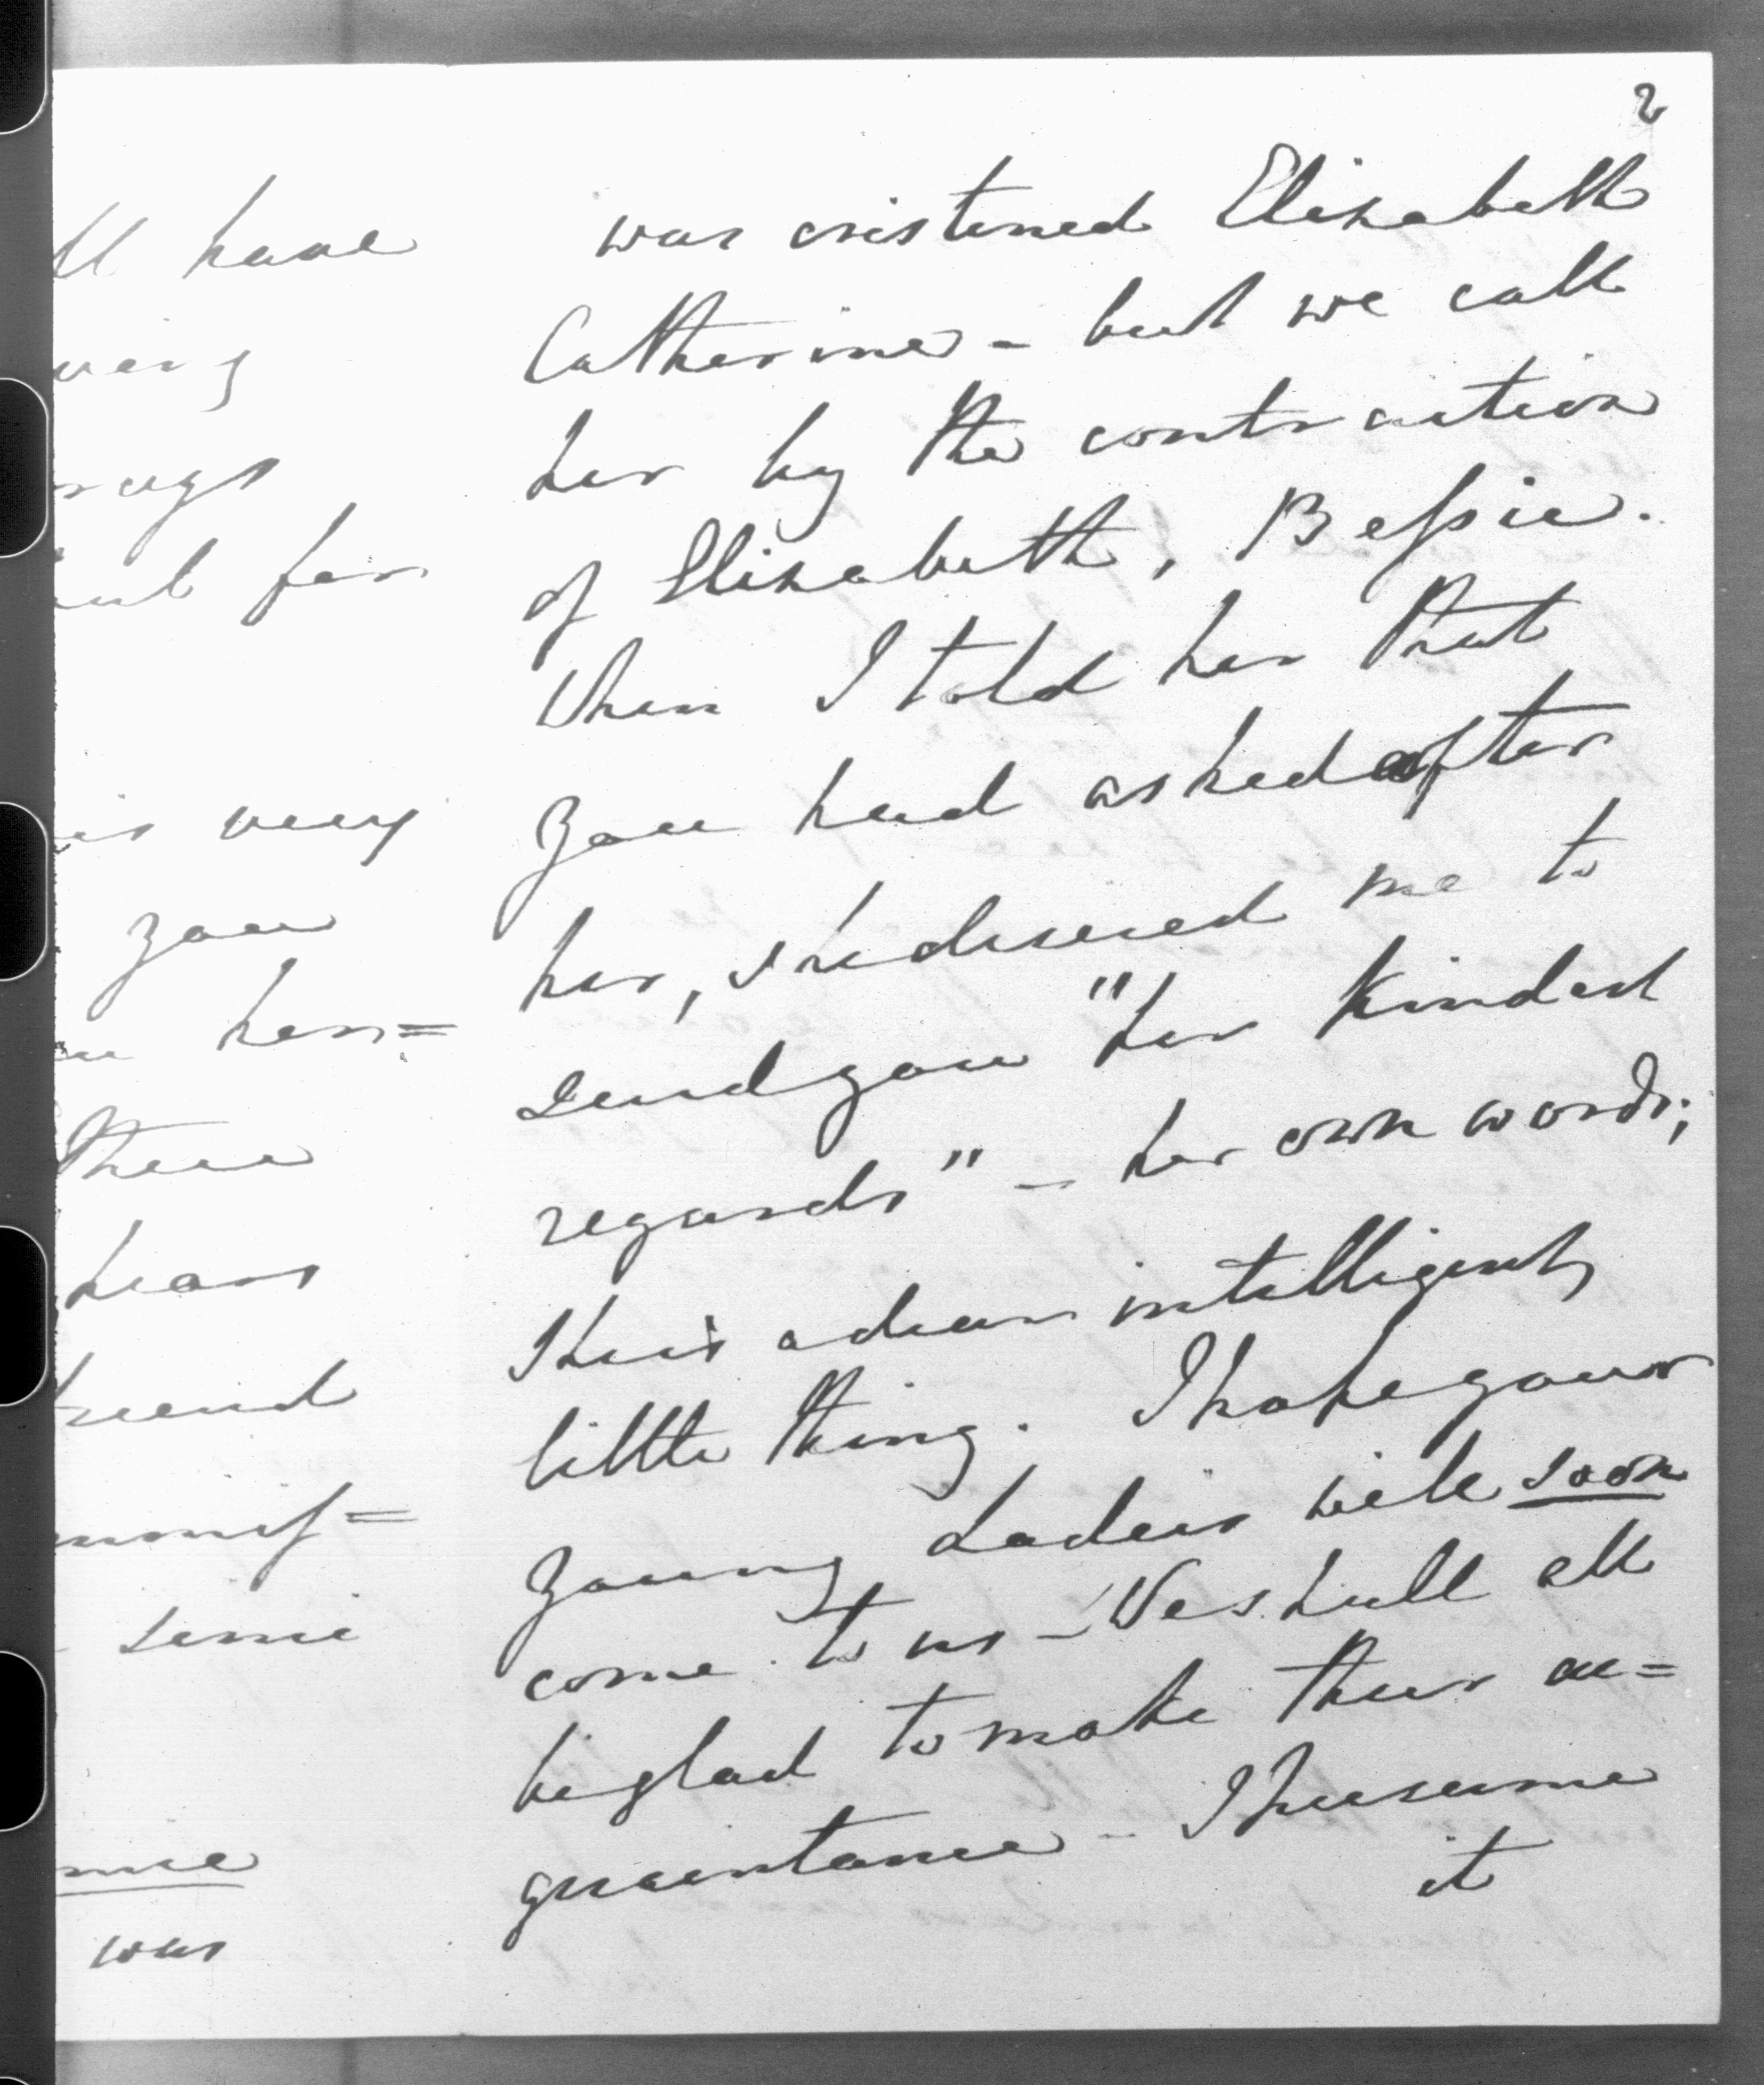 2
was cristened Elizabeth
Catherine - but we call
her by the contraction
of Elizabeth, Bessie.
When I told her that
you had asked after
her, she desired me to
send you "her kindest
regards" - her own words;
She is a dear intelligent
little thing. I hope your
young Ladies will soon
come to us - We shall all
be glad to make their ac=
quaintance - I presume
it
ll have
very
rugs
for
is very
you
her=
there
hears
friend
mnif=
semi
was